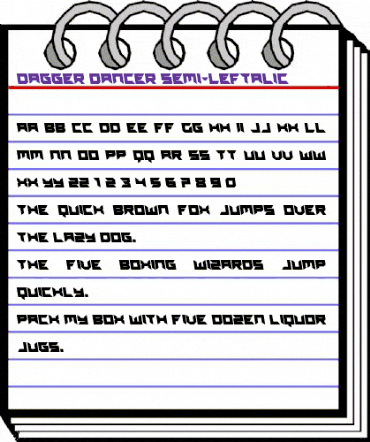 DAGGER DANCER SEMI-LEFTALIC
AA BB CC DD EE FF GG HH II JJ KK LL
MM NN OO PP QQ RR SS TT UU VV WW
XX YY ZZ 1 2 3 4 5 6 7 8 9 0
THE QUICK BROWN FOX JUMPS OVER
THE LAZY DOG.
THE FIVE BOXING WIZARDS JUMP
QUICKLY.
PACK MY BOX WITH FIVE DOZEN LIQUOR
JUGS.